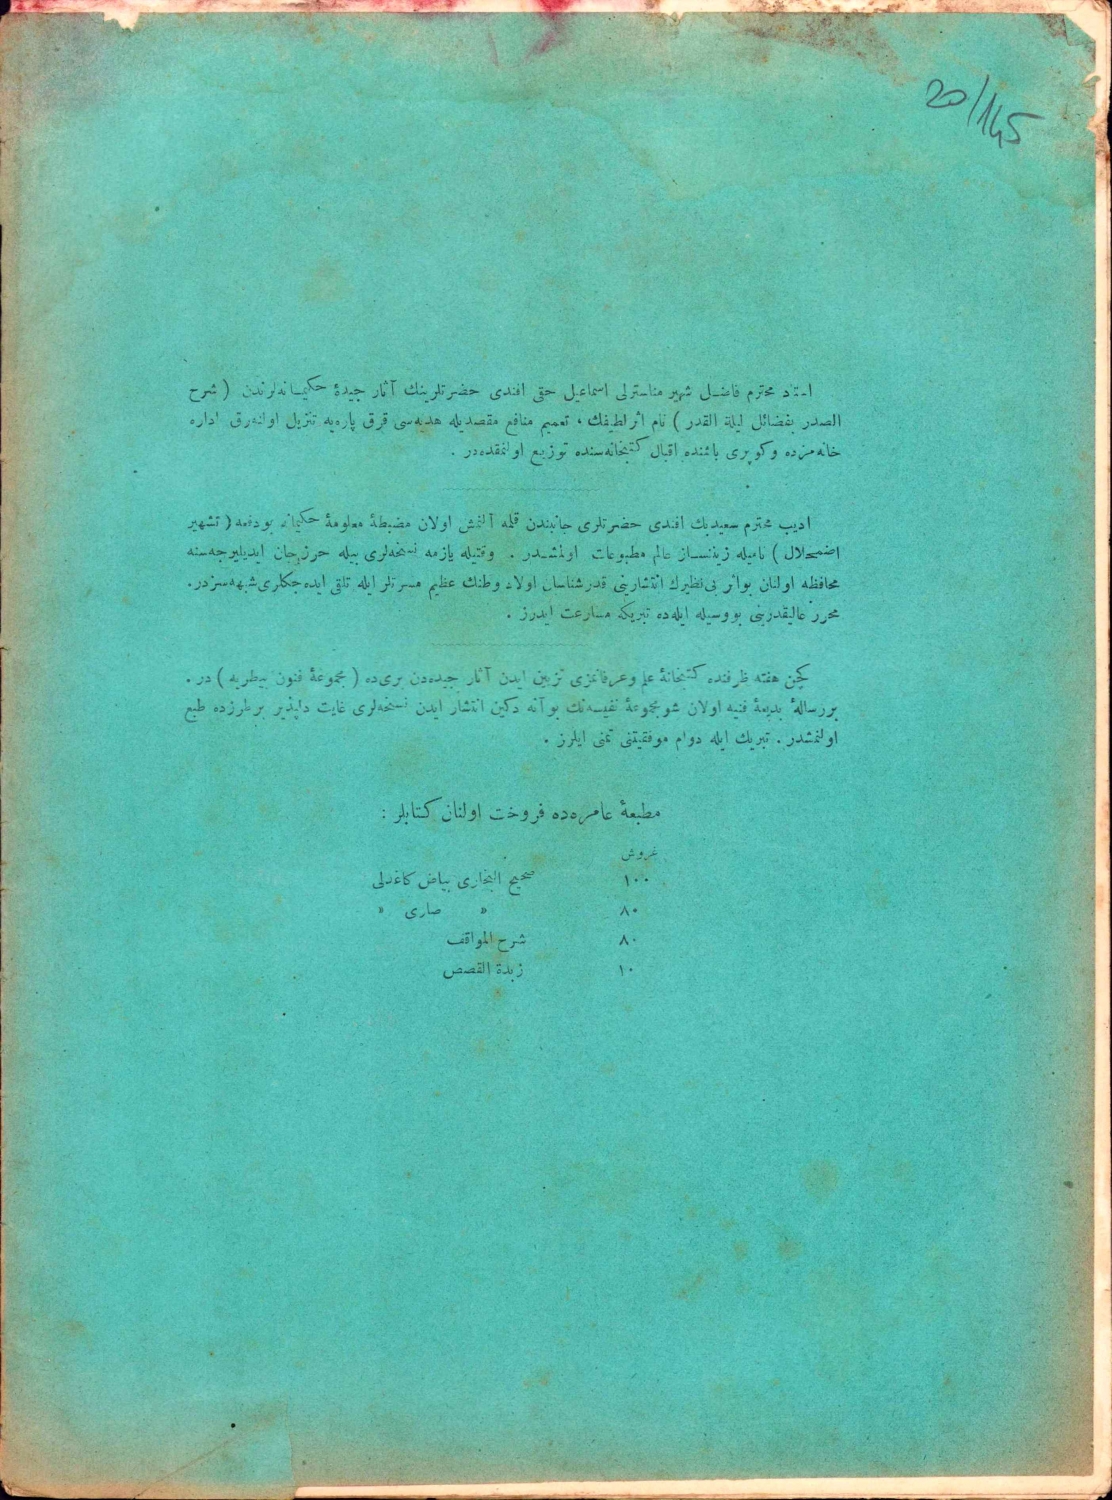 20/145
استاد محترم فاضل شهیر مناسترلی اسماعیل حقی افندی حضرتلرینك آثار جیدهٔ حكیمانه‌لرندن ( شرح
الصدر بفضائل لیلة القدر ) نام اثر لطیفك ، تعمیم منافع مقصدیله هدیه‌سی قرق پاره‌یه تنزیل اولنه‌رق اداره
خانه‌مزده وكوپری باشنده اقبال كتبخانه‌سنده توزیع اولنمقده‌در .
ادیب محترم سعید بك افندی حضرتلری جانبندن قلمه آلنمش اولان مضبطهٔ معلومهٔ حكیمانه بودفعه ( تشهیر
اضمحلال ) نامیله زینتساز عالم مطبوعات اولمشدر . وقتیله یازمه نسخه‌لری بیله حرزجان ایدیلیرجه‌سنه
محافظه اولنان بواثر بی‌نظیرك انتشارینی قدرشناسان اولاد وطنك عظیم مسرتلر ایله تلقی ایده‌جكلری شبهه‌سزدر .
محرر عالیقدرینی بووسیله ایله‌ده تبریكه مسارعت ایدرز .
كچن هفته ظرفنده كتبخانهٔ علم وعرفانمزی تزیین ایدن آثار جیده‌دن بری‌ده ( مجموعهٔ فنون بیطریه ) در .
بر رسالهٔ بدیعهٔ فنیه اولان شو مجموعهٔ نفیسه‌نك بو آنه دكین انتشار ایدن نسخه‌لری غایت دلپذیر بر طرزده طبع
اولنمشدر . تبریك ایله دوام موفقیتنی تمنی ایلرز .
مطبعهٔ عامره‌ده فروخت اولنان كتابلر :
غروش
١٠٠ صحیح البخاری بیاض كاغدلی
٨٠ » صاری »
٨٠ شرح المواقف
١٠ زبدة القصص